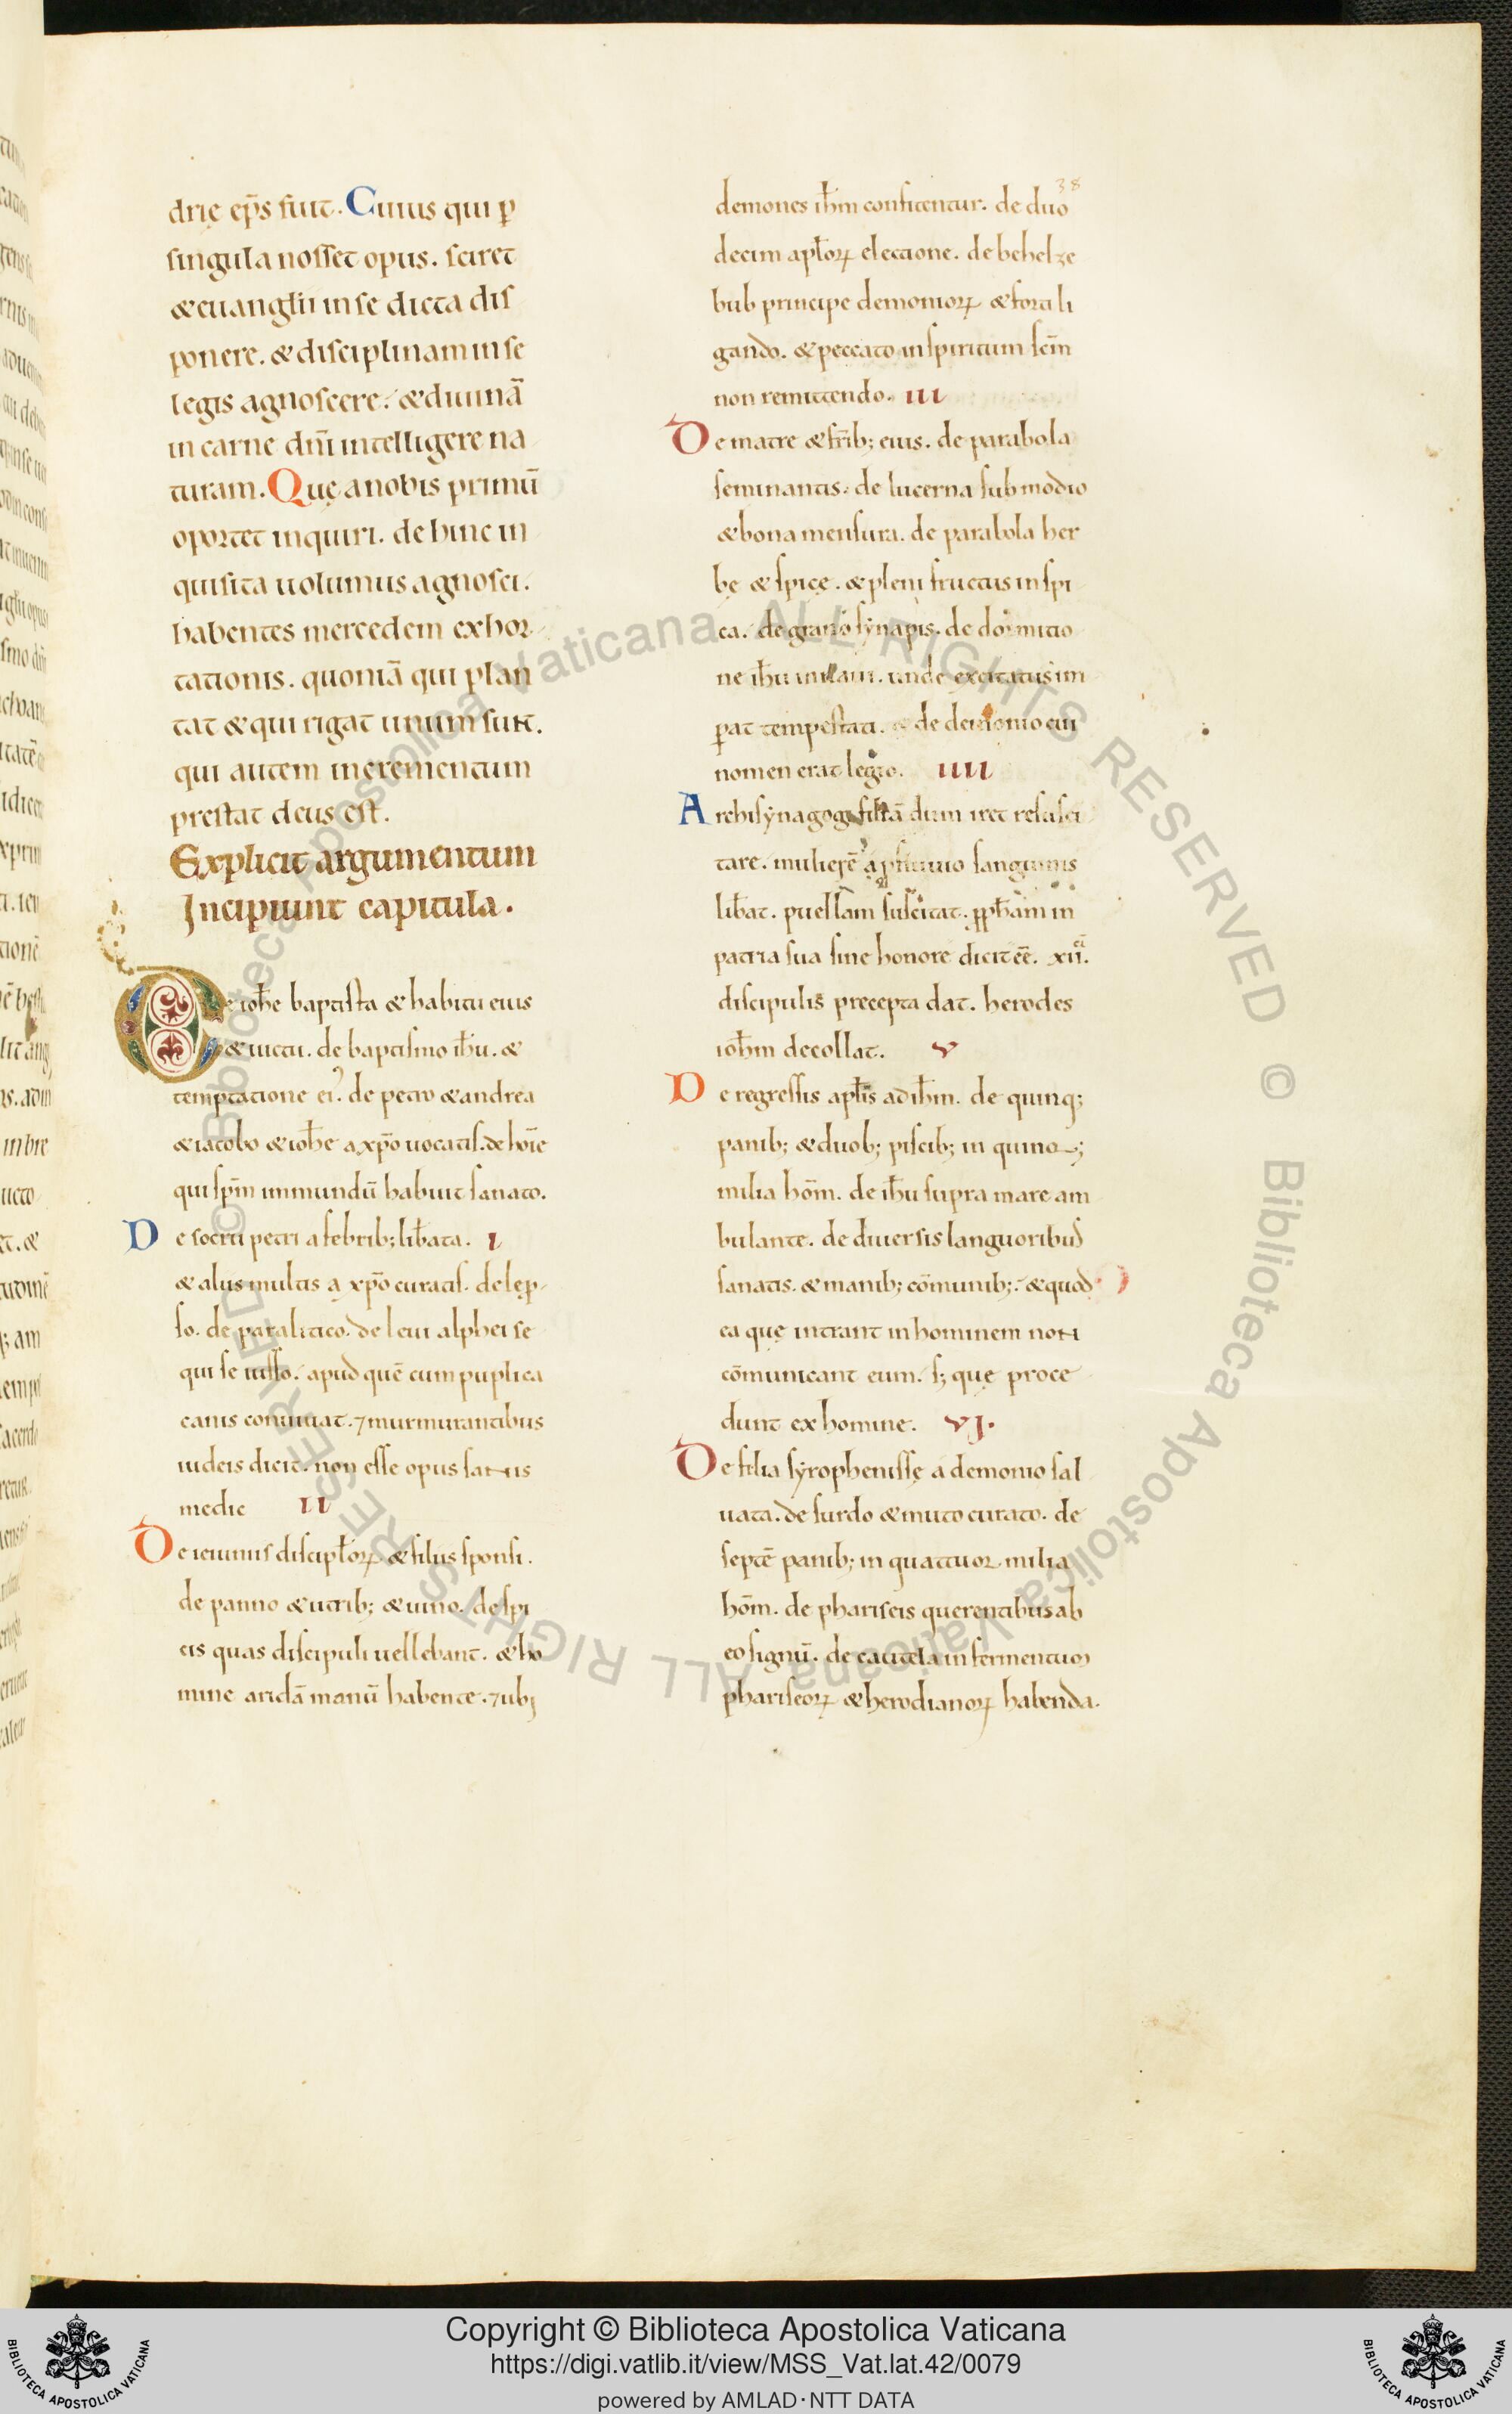 drię ep̄s fuit. Cuius qui ꝑ
singula nosset opus. sciret
& euangłii in se dicta dis
ponere. & disciplinam in se
legis agnoscere. & diuinā
in carne dn̄i intelligere na
turam. Quę a nobis primū
oportet inquiri. de hinc in
quisita uolumus agnosci.
habentes mercedem exhor
tationis. quoniā qui plan
tat & qui rigat unum sunt.
qui autem incrementum
prestat deus est.
Explicit argumentum
Incipiunt capitula.
De ioħe baptista & habitu eius
& uictu. de baptismo iħu. &
temptatione ei᾽. de petro & andrea
& iacobo & ioħe a xp̄o uocatis. de hoīe
qui sp̄m immundū habuit sanato.
De socru petri a febrib; lib̄ata. I
& aliis multis a xp̄o curatis. de lep
so. de paralitico. de leui alphei se
qui se iusso. apud quē cum puplica
canis conuiuat. ⁊ murmurantibus
iudeis dicit. non esse opus sanis
medic II
De ieiuniis discipłoꝝ & filiis sponsi.
de panno & utrib; & uino. de spi
cis quas discipuli uellebant. & ho
mine aridā manū habente. ⁊ ubi
38
demones iħm confitentur. de duo
decim apłoꝝ electione. de behelze
bub principe demonioꝝ & forti li
gando. & peccato in spiritum sc̄m
non remittendo. III
De matre & fr̄ib; eius. de parabola
seminantis. de lucerna sub modio
& bona mensura. de parabola her
bę & spicę. & pleni fructus in spi
ca. de grano synapis. de dormitio
ne iħu in naui. unde excitatus im
ꝑat tempestati. & de demonio cui
nomen erat legio. IIII
Archisynagogi filiā dum iret resusci
tare. mulierē a profluuio sanguinis
lib̄at. puellam suscitat. ꝓpħam in
patria sua sine honore dicit eē. xii.
discipulis precepta dat. herodes
ioħm decollat. V
De regressis apłis ad iħm. de quinq;
panib; & duob; piscib; in quinq;
milia hōm. de iħu supra mare am
bulante. de diuersis languoribus
sanatis. & manib; cōmunib;. & quod
ea quę intrant in hominem non
cōmunicant eum. s; quę proce
dunt ex homine. VI.
De filia syrophenissę a demonio sal
uata. de surdo & muto curato. de
septē panib; in quattuor milia
hōm. de phariseis querentibus ab
eo signū. de cautela in fermentum
phariseoꝝ & herodianoꝝ habenda.
© Biblioteca Apostolica Vaticana ALL RIGHTS RESERVED © Biblioteca Apostolica Vaticana ALL RIGHTS RESERVED
Copyright © Biblioteca Apostolica Vaticana
https://digi.vatlib.it/view/MSS_Vat.lat.42/0079
powered by AMLAD·NTT DATA
BIBLIOTECA APOSTOLICA VATICANA
BIBLIOTECA APOSTOLICA VATICANA